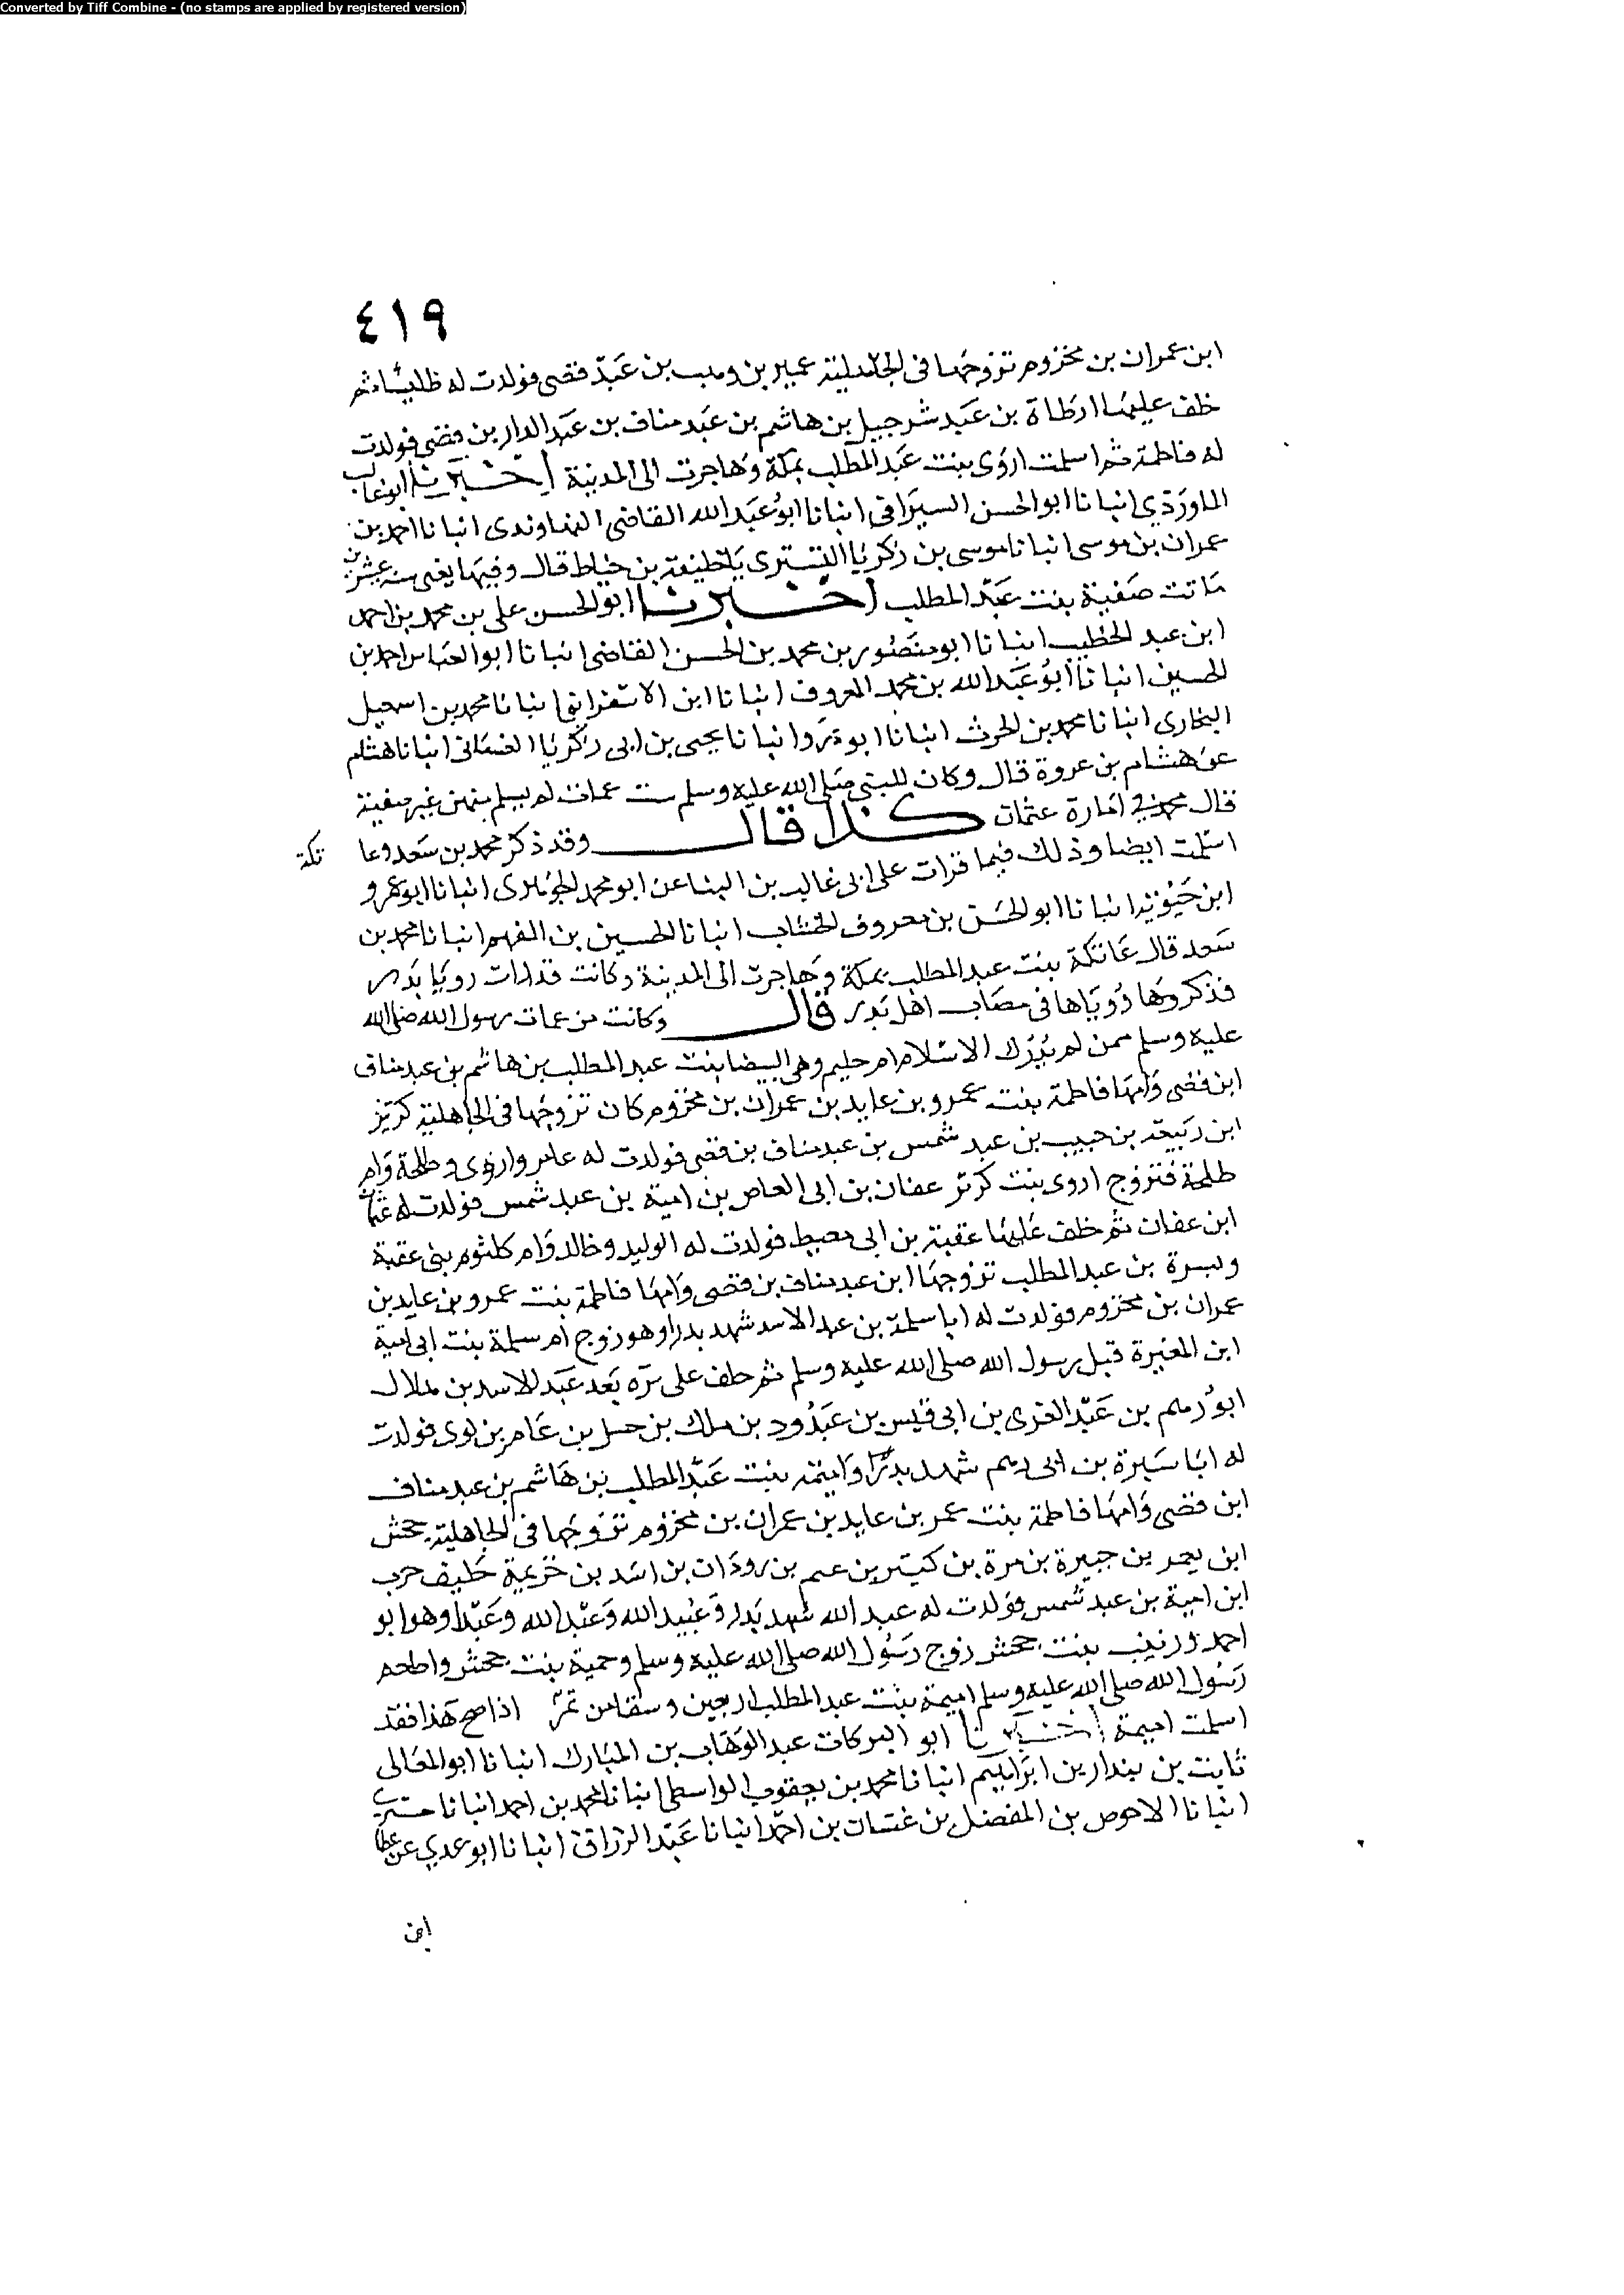 Converted by Tiff Combine - (no stamps are applied by registered version)
٤١٩
ابن عمران بن مخزوم تزوجها فى الجاهلية عمير بن وهب بن عبد قصى فولدت له طليبا ثم
خلف عليها ارطاة بن عبد شرحبيل بن هاشم بن عبد مناف بن عبد الدار بن قصى فولدت
له فاطمة ثم اسلمت اروى بنت عبد المطلب بمكة وهاجرت الى المدينة اخبرنا ابو غالب
الماوردي انبانا ابو الحسن السيرافى انبانا ابو عبد الله القاضى النهاوندى انبانا احمد بن
عمران بن موسى انبانا موسى بن زكريا التسترى خليفة بن خياط قال وفيها يعنى سنة عشرين
ماتت صفية بنت عبد المطلب اخبرنا ابو الحسن على بن محمد بن احمد
ابن عبد الخطيب انبانا ابو منصور بن محمد بن الحسن القاضى انبانا ابو العباس احمد بن
الحسين انبانا ابو عبد الله بن محمد المعروف انبانا ابن الاشقر انبانا محمد بن اسمعيل
البخارى انبانا محمد بن الحرث انبانا ابو ذر وانبانا يحيى بن ابى زكريا الغسانى انبانا هشام
عن هشام بن عروة قال وكان للنبى صلى الله عليه وسلم ست عمات لم يسلم منهن غير صفية
قال محمد فى امارة عثمان كذا قال وقد ذكر محمد بن سعد وعا تكة
اسلمت ايضا وذلك فيما قرات على ابى غالب بن البنا عن ابو محمد الجوهرى انبانا ابو عمرو
ابن حيويه انبانا ابو الحسن بن معروف الخشاب انبانا الحسين بن الفهم انبانا محمد بن
سعد قال عاتكة بنت عبد المطلب بمكة وهاجرت الى المدينة وكانت قد رات رويا بدر
فذكروها رؤياها فى مصاب اهل بدر قال وكانت من عمات رسول الله صلى الله
عليه وسلم ممن لم يدرك الاسلام ام حليم وهى البيضا بنت عبد المطلب بن هاشم بن عبد مناف
ابن قصى وامها فاطمة بنت عمرو بن عايد بن عمران بن مخزوم كان تزوجها فى الجاهلية كريز
ابن ربيعة بن حبيب بن عبد شمس بن عبد مناف بن قصى فولدت له عامر واروى وطلحة وام
طلحة فتزوج اروى بنت كريز عفان بن ابى العاص بن امية بن عبد شمس فولدت له عثمان
ابن عفان ثم خلف عليها عقبة بن ابى معيط فولدت له الوليد وخالد وام كلثوم بنى عقبة
وبسرة بن عبد المطلب تزوجها ابن عبد مناف بن قصى وامها فاطمة بنت عمرو بن عايد بن
عمران بن مخزوم فولدت له ابا سلمة بن عبد الاسد شهد بدرا وهو زوج ام سلمة بنت ابى امية
ابن المغيرة قبل رسول الله صلى الله عليه وسلم ثم خلف على برة بعد عبد الاسد بن هلال
ابو رهم بن عبد العزى بن ابى قيس بن عبد ود بن ملك بن حسل بن عامر بن لوى فولدت
له ابا سبرة بن ابى رهم شهد بدرا واميمة بنت عبد المطلب بن هاشم بن عبد مناف
ابن قصى وامها فاطمة بنت عمر بن عايد بن عمران بن مخزوم تزوجها فى الجاهلية جحش
ابن يعمر بن جبيرة بن مرة بن كبير بن عم بن رودان بن اسد بن خزيمة حليف حرب
ابن امية بن عبد شمس فولدت له عبد الله شهد بدرا وعبيد الله وعبد الله وعبدا وهو ابو
احمد وزينب بنت جحش زوج رسول الله صلى الله عليه وسلم وحمية بنت جحش واطعم
رسول الله صلى الله عليه وسلم اميمة بنت عبد المطلب اربعين وسقا من تمر اذا صح هذا فقد
اسلمت اميمة اخبرنا ابو البركات عبد الوهاب بن المبارك انبانا ابو المعالى
ثابت بن بندار بن ابراهيم انبانا محمد بن يعقوب الواسطى انبانا محمد بن احمد انبانا
انبانا الاحوص بن المفضل بن غسان بن احمد انبانا عبد الرزاق انبانا ابو عدي عن عطا
ابن